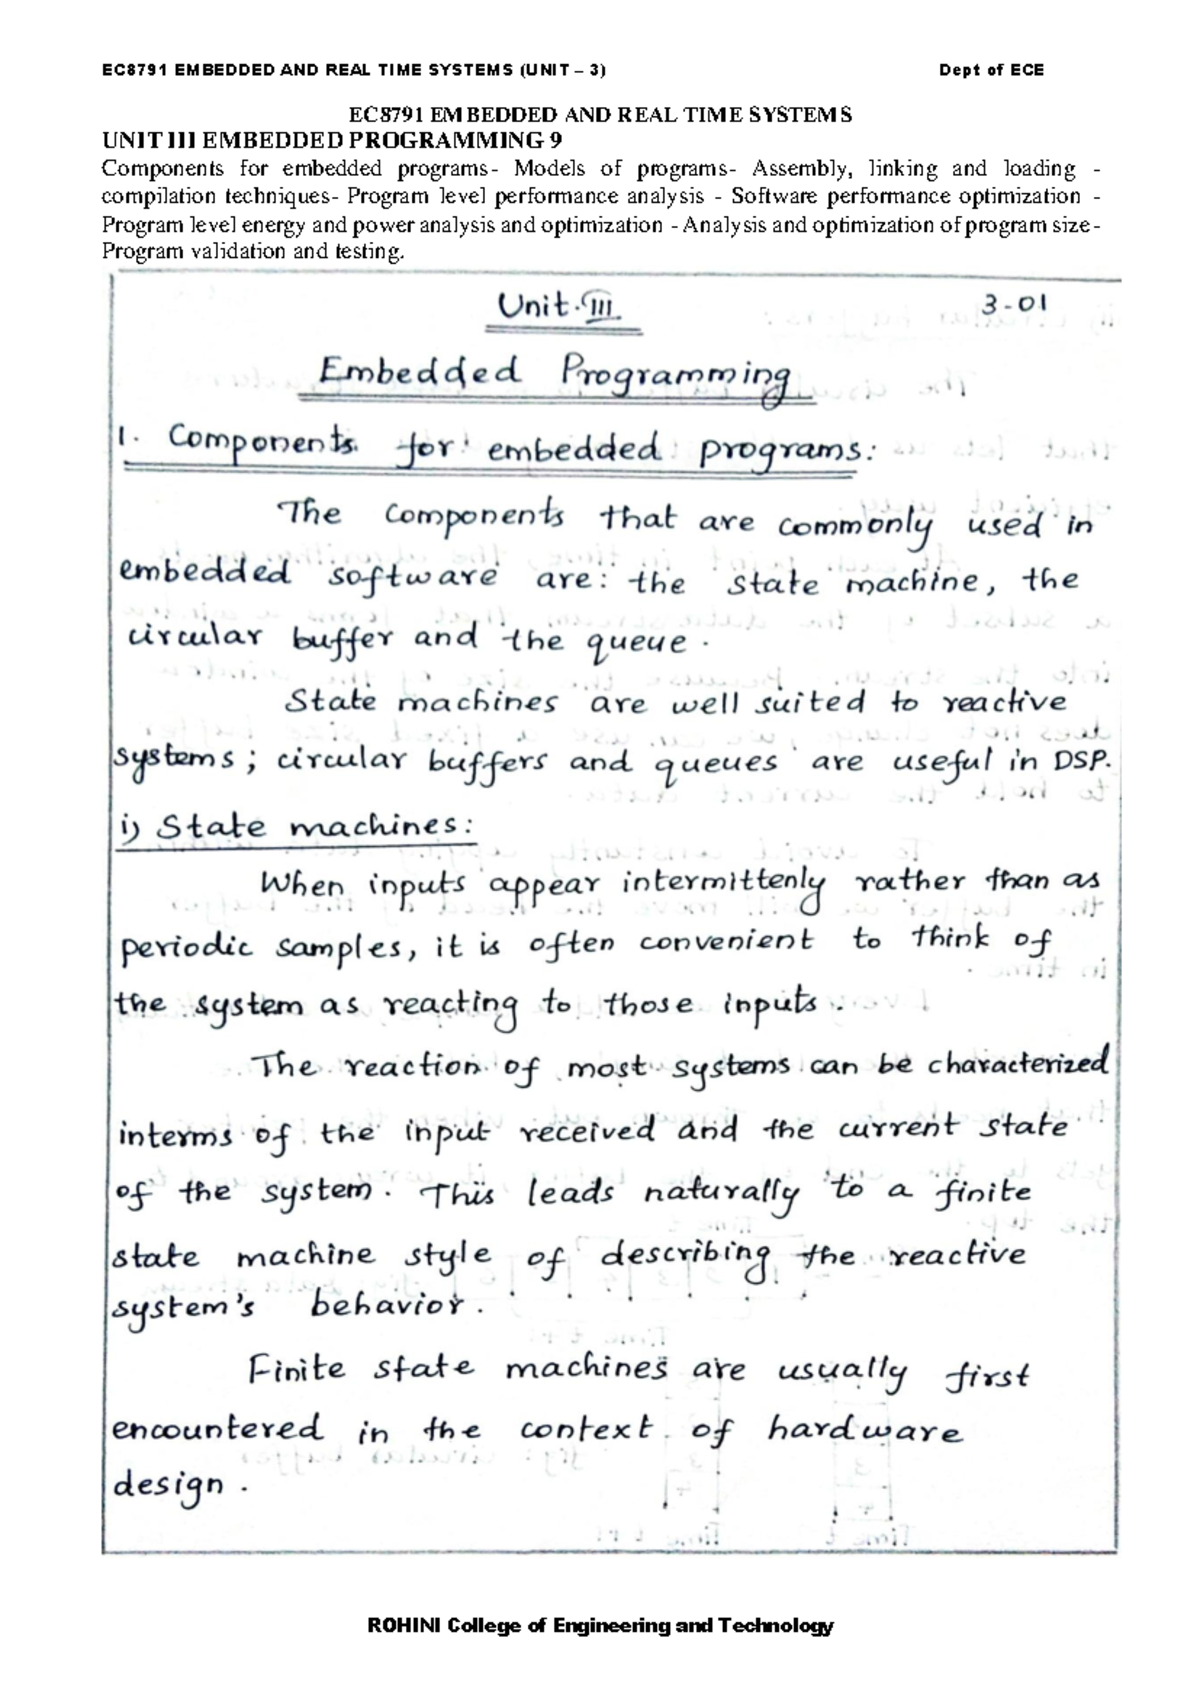 EC8791 EMBEDDED AND REAL TIME SYSTEMS (UNIT – 3) Dept of ECE
EC8791 EMBEDDED AND REAL TIME SYSTEMS
UNIT III EMBEDDED PROGRAMMING 9
Components for embedded programs- Models of programs- Assembly, linking and loading -
compilation techniques- Program level performance analysis - Software performance optimization -
Program level energy and power analysis and optimization - Analysis and optimization of program size-
Program validation and testing.
Unit-III 3-01
Embedded Programming
1. Components for embedded programs:
The components that are commonly used in
embedded software are: the state machine, the
circular buffer and the queue.
State machines are well suited to reactive
systems; circular buffers and queues are useful in DSP.
i) State machines:
When inputs appear intermittenly rather than as
periodic samples, it is often convenient to think of
the system as reacting to those inputs.
The reaction of most systems can be characterized
interms of the input received and the current state
of the system. This leads naturally to a finite
state machine style of describing the reactive
system's behavior.
Finite state machines are usually first
encountered in the context of hardware
design.
ROHINI College of Engineering and Technology